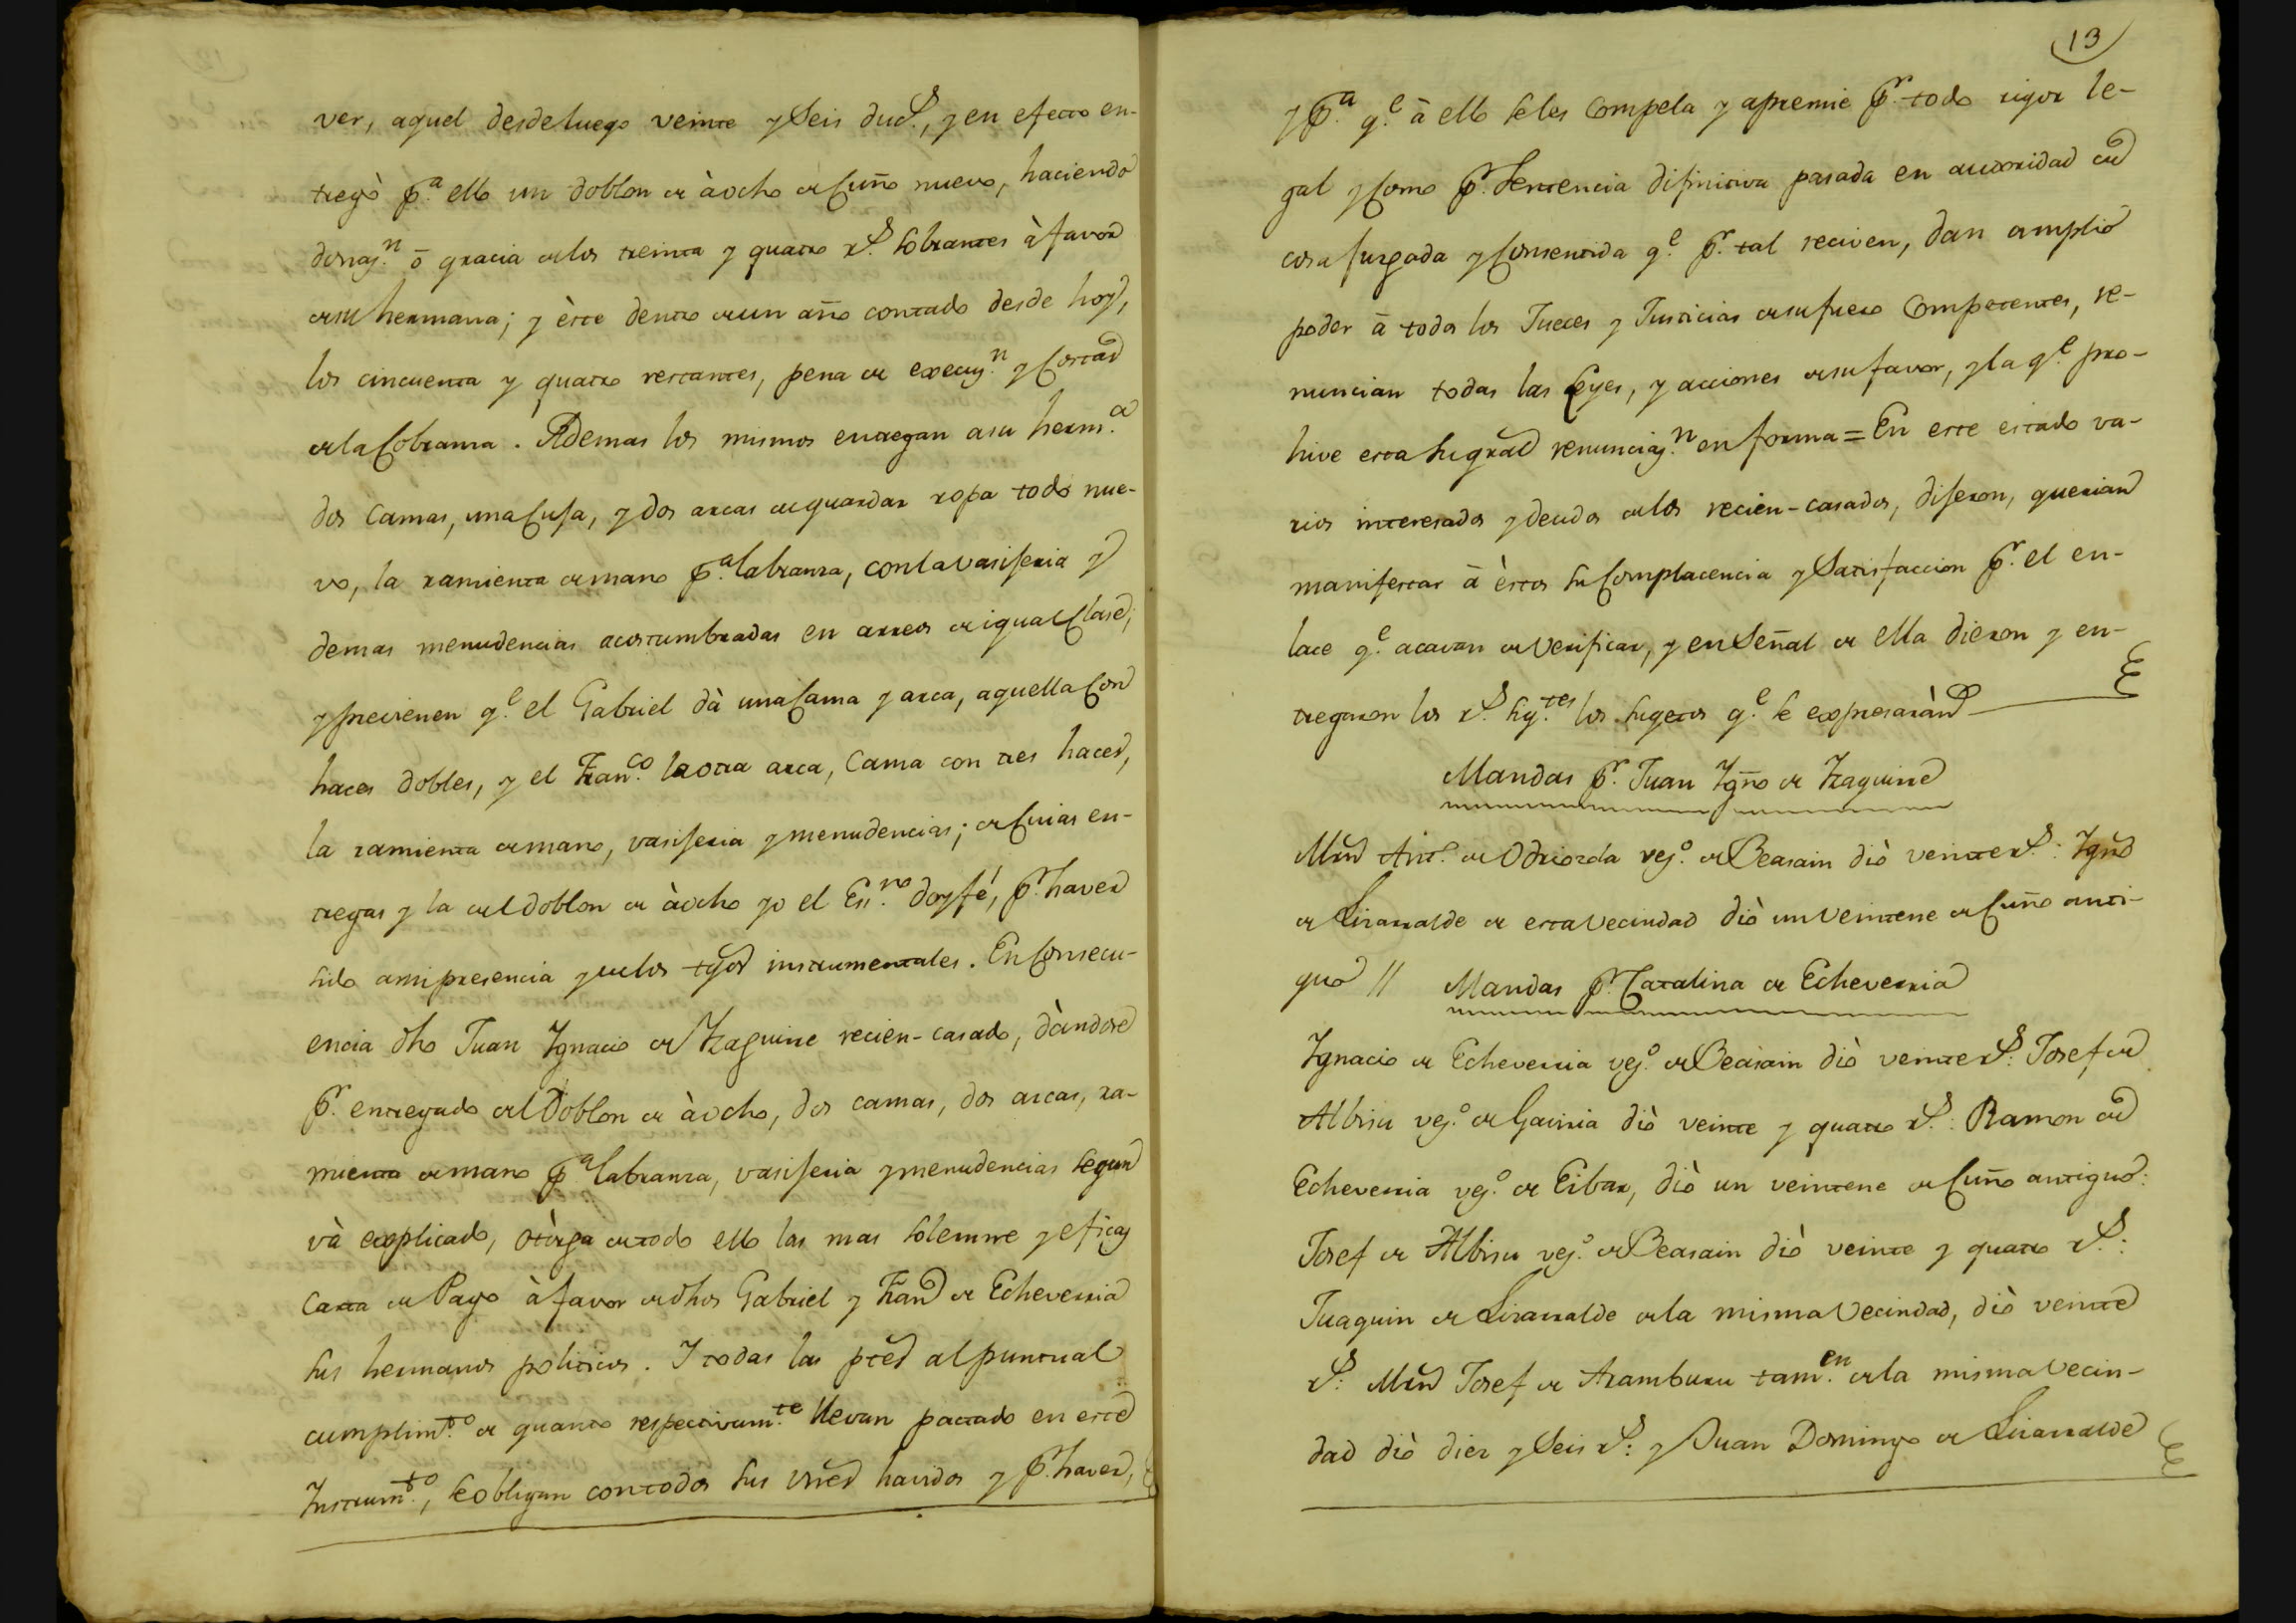 ver, aquel desde luego veinte y Seis duc.s, y en efecto en-
tregò p.a ello un doblon de à ocho de Cuño nuevo, haciendo
donaz.n ō gracia de los treinta y quatro r.s sobrantes à favor
de su hermana; y èste dentro de un año contado desde hoy,
los cincuenta y quatro restantes, pena de execuz.n y Costas
de la Cobranza. Ademas los mismos entregan a su herm.a
dos Camas, una Cuja, y dos arcas de guardar ropa todo nue-
vo, la ramienta de mano p.a labranza, con la vasijeria y
demas menudencias acostumbradas en arreos de igual Clase;
y previenen q.e el Gabriel dà una Cama y arca, aquella Con
haces dobles, y el Fran.co la otra arca, Cama con tres haces,
la ramienta de mano, vasijeria y menudencias; de Cuias en-
tregas y la del doblon de àocho yo el Ess.no doy fé, p.r haver
sido a mi presencia y de los tgos instrumentales. En Consecu-
encia dho Juan Ygnacio de Yzaguirre recien-casado, dàndose
p.r entregado del Doblon de àocho, dos camas, dos arcas, ra-
mienta de mano p.a labranza, vasijeria y menudencias segun
và explicado, otòrga de todo ello las mas solemne y eficaz
Carta de Pago à favor de dhos Gabriel y Fran.co de Echeverria
sus hermanos politicos. Y todas las ptes al puntual
cumplim.to de quanto respectivam.te llevan pactado en este
Instrum.to, se obligan con todos sus vnes havidos y p.r haver,
13
y p.a q.e à ello se les Compela y apremie p.r todo rigor le-
gal y Como p.r Sentencia difinitiva pasada en autoridad de
cosa Juzgada y Consentida q.e p.r tal reciven, dan amplio
poder ā todos los Jueces y Justicias de su fuero Competentes, re-
nuncian todas las Leyes, y acciones de su favor, y la q.e pro-
hive esta su gral renunciaz.n en forma = En este estado va-
rios interesados y deudos de los recien-casados, dijeron, querian
manifestar ā èstos su Complacencia y Satisfaccion p.r el en-
lace q.e acavan de Verificar, y en Señal de ella dieron y en-
tregaron los r.s sig.tes los sugetos q.e se expresaràn
Mandas p.r Juan Ygño de Yzaguirre
Mrn Ant.o de Odriozola vez.o de Beasain diò veinte r.s: Ygño
de Lizarralde de esta Vecindad diò un Veintene de Cuño anti-
guo // Mandas p.r Catalina de Echeverria
Ygnacio de Echeverria vez.o de Beasain diò veinte r.s: Josef de
Albisu vez.o de Gainza diò veinte y quatro r.s: Ramon de
Echeverria vez.o de Eibar, diò un veintene de Cuño antiguo:
Josef de Albisu vez.o de Beasain diò veinte y quatro r.s:
Juaquin de Lizarralde de la misma Vecindad, diò veinte
r.s: Mrn Josef de Aramburu tam.en de la misma Vecin-
dad diò diez y Seis r.s: y Juan Domingo de Lizarralde